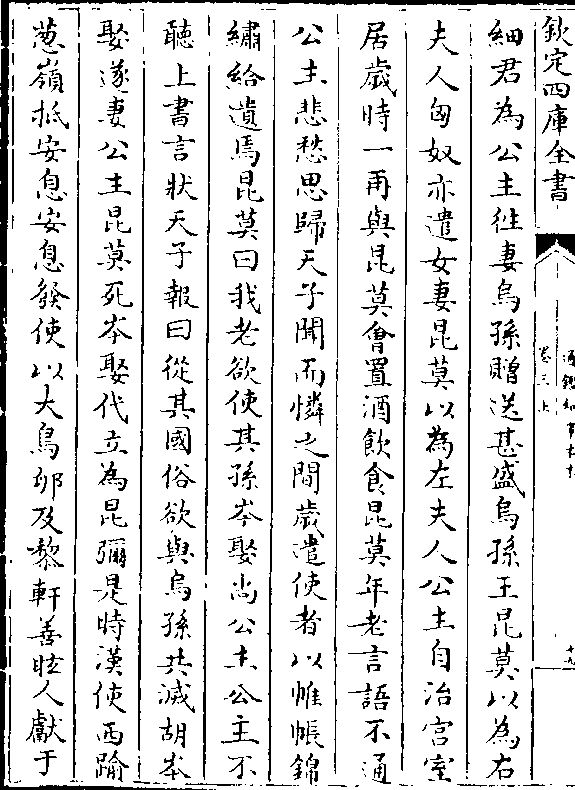 欽定四庫全書
卷三上
細君為公主往妻烏孫贈送甚盛烏孫王昆莫以為右
夫人匈奴亦遣女妻昆莫以為左夫人公主自治宫室
居歳時一再與昆莫會置酒飲食昆莫年老言語不通
公主悲愁思歸天子聞而憐之間歳遣使者以帷帳錦
繡給遺焉昆莫曰我老欲使其孫岑娶尚公主公主不
聽上書言狀天子報曰從其國俗欲與烏孫共滅胡岑
娶遂妻公主昆莫死岑娶代立為昆彌是時漢使西踰
葱嶺抵安息安息發使以大鳥卵及黎軒善眩人獻于